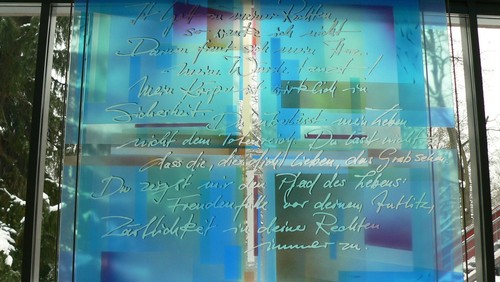 zu meiner Rechten,
so wanke ich nicht
Darum freut sich mein Herz
meine Würde
Mein Körper ist wirklich in
Sicherheit! Du überlässt mein Leben
nicht dem Totenreich Du lässt nicht zu
dass die, die dich lieben, das Grab sehen
Du zeigst mir den Pfad des Lebens
Freudenfülle vor deinem Antlitz,
Zärtlichkeit in deiner Rechten
immer zu